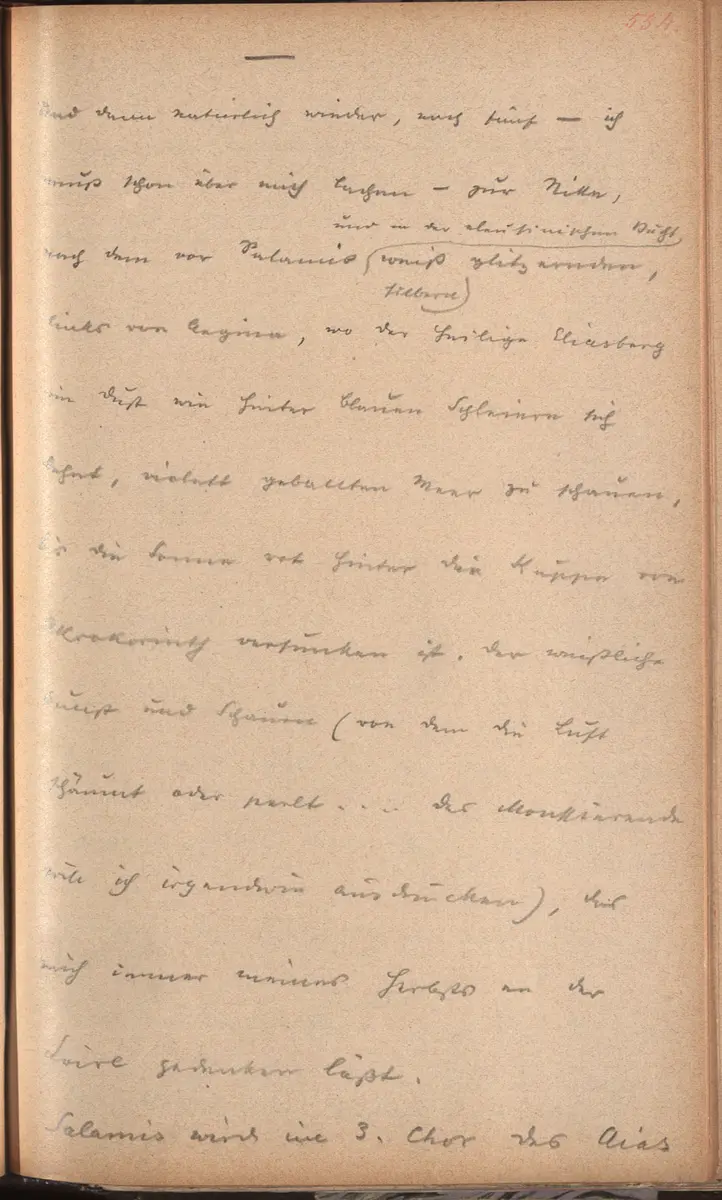 554.
und dann natürlich wieder, nach fünf — ich
muß schon über mich lachen — zur Nike,
und in der eleusinischen Bucht
nach dem vor Salamis (weiß glitzernden,
silbern)
links von Aegina, wo der heilige Eliasberg
im Dust wie hinter blauen Schleiern sich
dehnt, violett geballten Meer zu schauen,
bis die Sonne rot hinter der Kuppe von
Akrokorinth versunken ist. der weißliche
Dunst und Schaum (von dem die Luft
schäumt oder perlt .... das Moussierende
will ich irgendwie ausdrücken), das
mich immer meines Herbsts an der
Loire gedenken läßt.
Salamis wird im 3. Chor des Aias